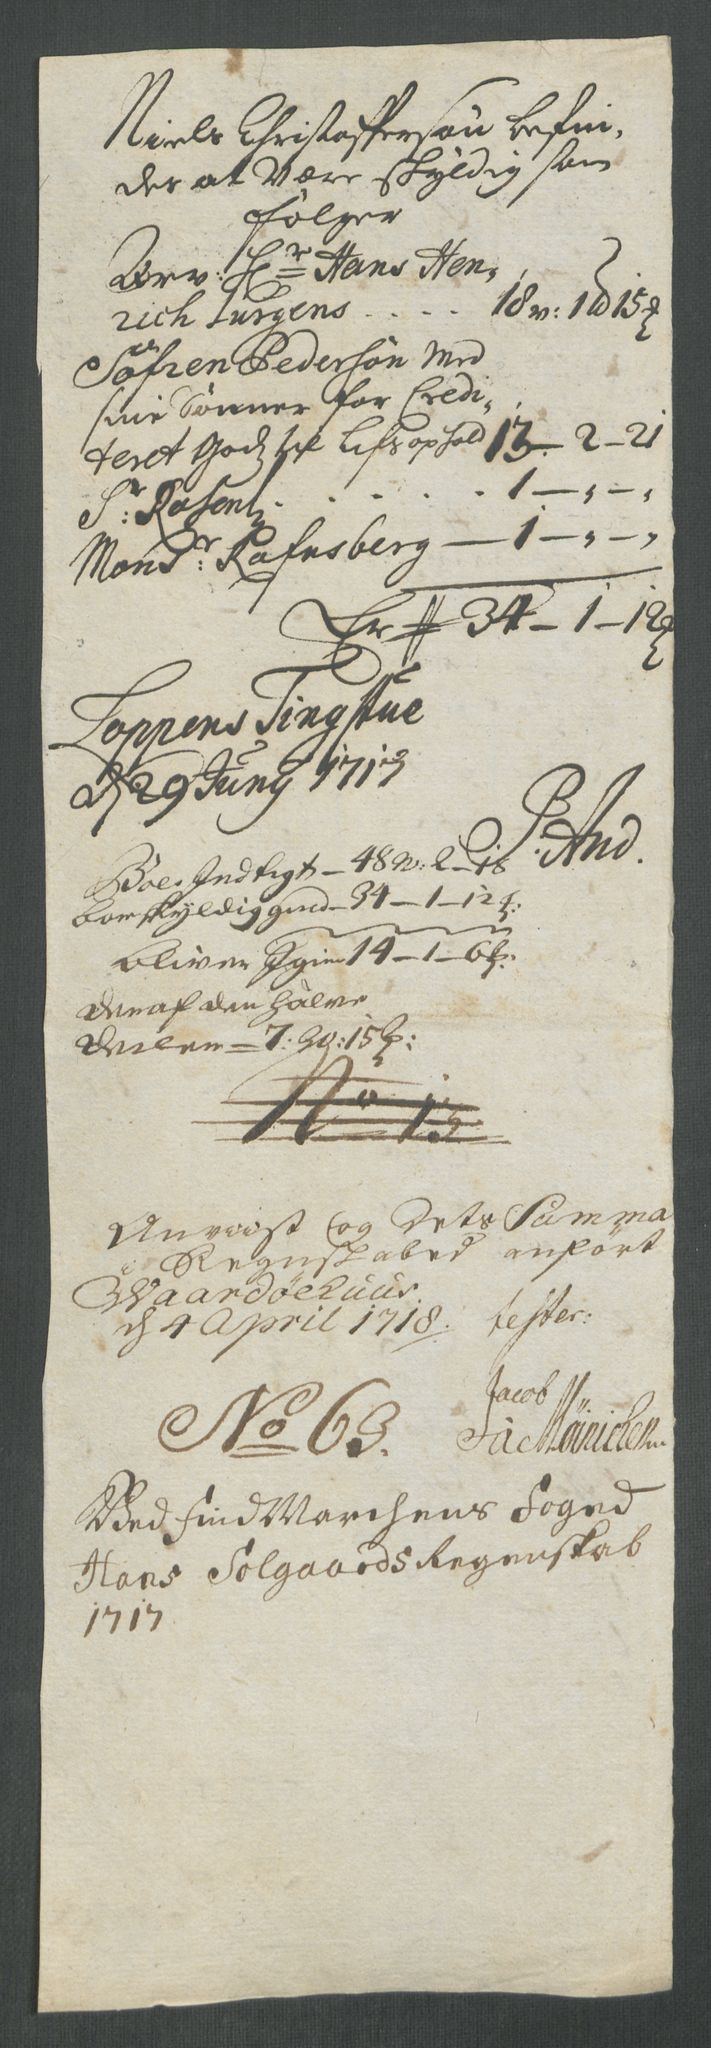 Niels Christoffersøn befin,
des at være skyldig som
følger
Hr Hans Hen,
rich Jürgens .... 18 v: 1 15
Søfren Pedersøn med
sine Sønner for Credi,
teret Godz til Lifs ophold 13 – 2 – 21
Sr: Rasen . . . . . 1 – „ – „
Monsr: Rafnsberg — 1 – „ – „
Er 34 – 1 – 12
Loppens Tingstue
d 29 Juny 1717
P. And.
Boes Indtegt – 48 v: 2 – 18
bortskyldig 34 – 1 – 12
bliver Igien 14 – 1 – 6
deraf den halve
deelen – 7: 15
No 15
Anviist og dets Summa
i Regnskabed anført
Waardøehuus
d 4 April 1718. tester:
Jacob
No 63. Mönichen
Ved Find Marchens Foged
Hans Solgaards Regenskab
1717